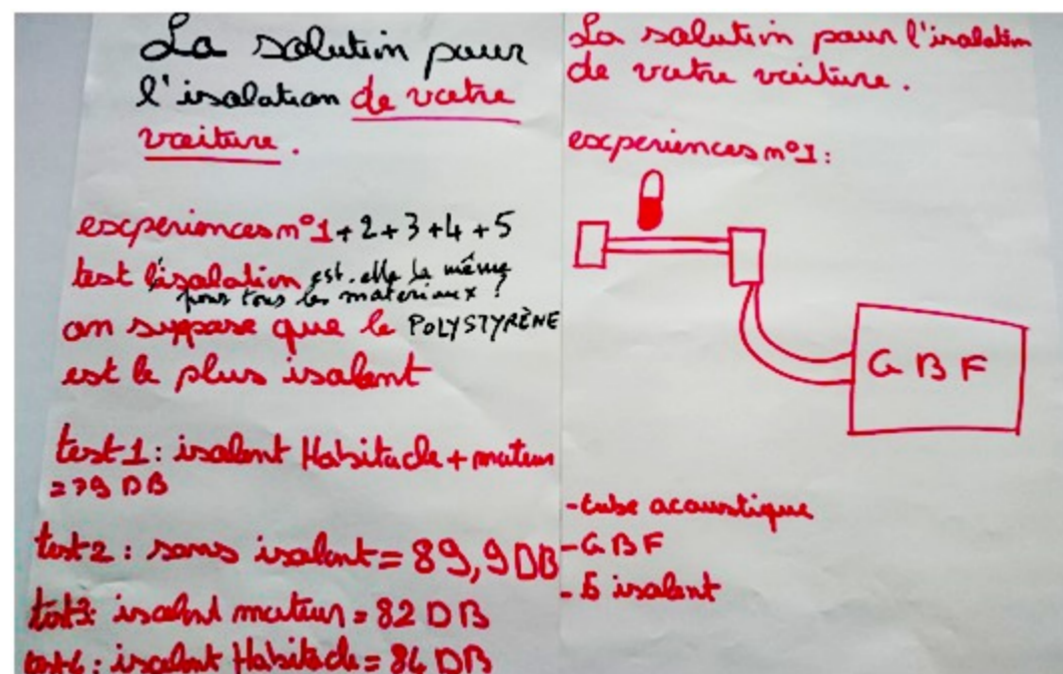 La solution pour
l'isolation de votre
voiture.
experiences n°1 + 2 + 3 + 4 + 5
test l'isolation est-elle la même
pour tous les materiaux ?
on suppose que le POLYSTYRÈNE
est le plus isolent
test 1: isolent Habitacle + moteur
= 79 DB
test 2 : sans isolent = 89,9 DB
test 3: isolent moteur = 82 DB
test 4 : isolent Habitacle = 84 DB
La solution pour l'isolation
de votre voiture.
experiences n°1:
GBF
- tube acoustique
- GBF
- 5 isolent